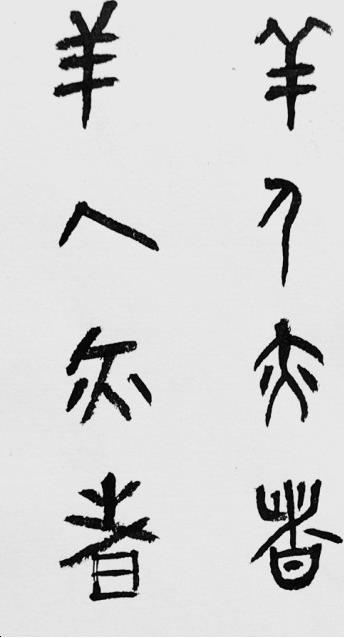 羊人亦者
羊人亦者